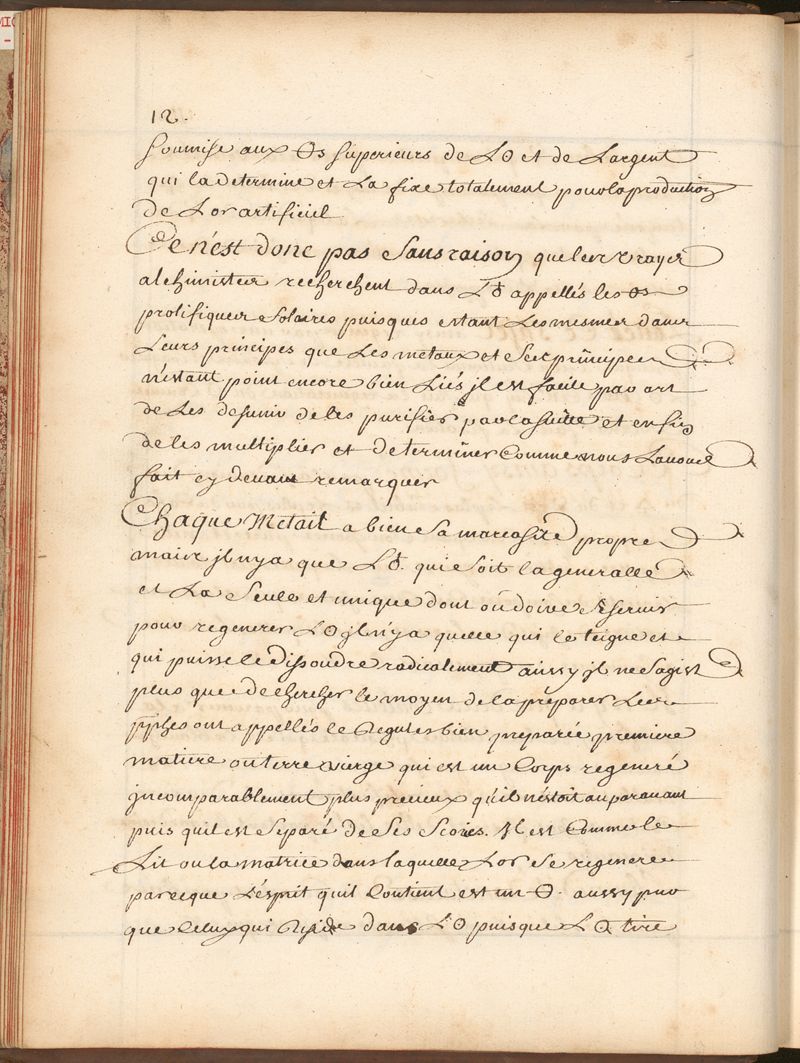 12.
soumise aux 🜍s superieurs de L☉ et de Largent
qui la determine et La fixe totalement pour la production
de Lor artificiel
Ce n'est donc pas sans raison que les vrayes
alchimistes recherchent dans L♁ appellés les
prolifiques solaires puisques estant Les mesmes dans
Leurs principes que Les metaux et ses principes
n'estant point encore bien Liés jl est facile par art
de Les desunir de les purifier par la suitte et enfin
de les multiplier et determiner Comme nous Lavons
fait cy devant remarquer
Chaque Metail a bien sa marcasite propre
mais jl nya que L♁. qui soit la generalle
et La seule et unique dont on doive se servir
pour regenerer L☉ jl n'ya quelle qui le teigne et
qui puisse le dissoudre radicalement aussy jl ne sagist
plus que de chercher le moyen de la preparer Les
pphes ont appellés le Regules bien preparée premiere
matiere ou terre vierge qui est un Corps regeneré
jncomparablement plus precieux qu'il nestoit auparavant
puis quil est separé de ses scories. Il est Comme le
Lit ou la matrice dans laquelle Lor se regenere
parceque Lesprit quil Contient est un aussy pur
que Celuy qui reside dans L☉ puisque L☉ tire